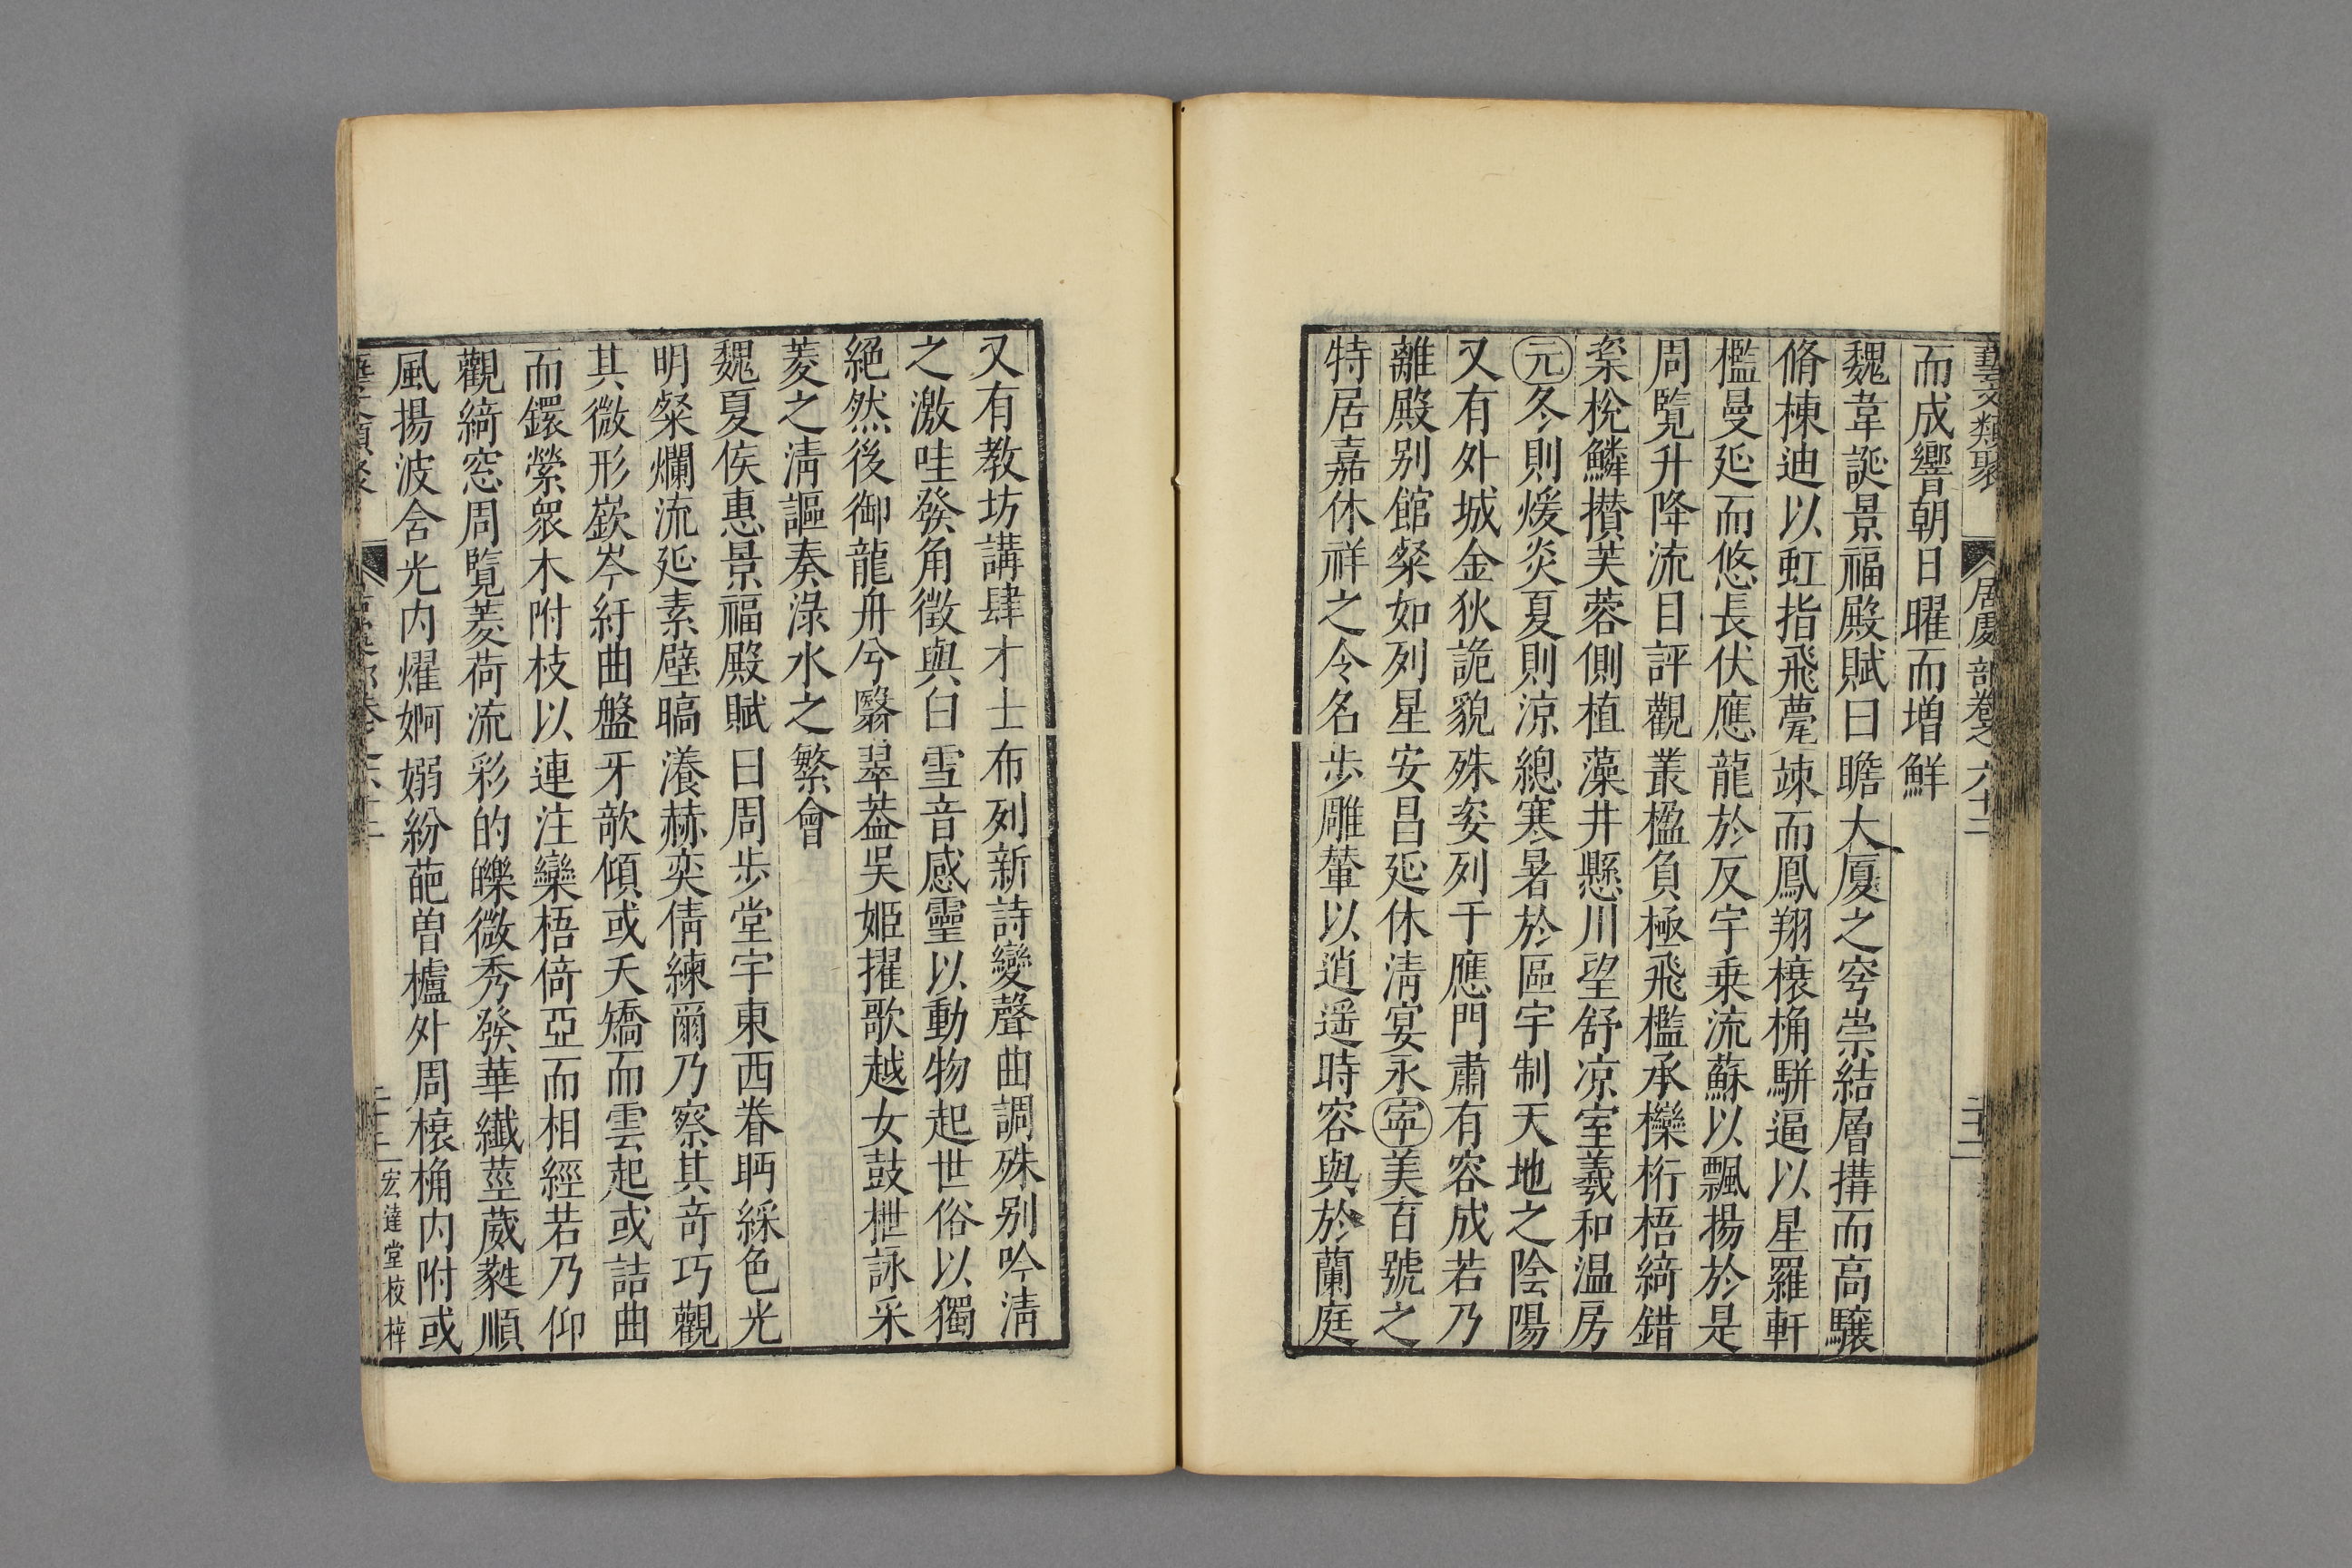 藝文類聚 居處部卷之六十二
而成響朝日曜而增鮮
魏韋誕景福殿賦曰瞻大厦之穹崇結層搆而高驤
脩棟迪以虹指飛甍竦而鳳翔榱桷駢逼以星羅軒
檻曼延而悠長伏應龍於反宇乗流蘇以飄揚於是
周覽升降流目評觀叢楹負極飛檻承欒桁梧綺錯
楶梲鱗攢芙蓉側植藻井懸川望舒凉室羲和温房
元冬則煖炎夏則涼總寒暑於區宇制天地之陰陽
又有外城金狄詭貌殊姿列于應門肅有容成若乃
離殿别館粲如列星安昌延休清宴永寜美百號之
特居嘉休祥之令名歩雕輦以逍遥時容與於蘭庭
又有教坊講肆才士布列新詩變聲曲調殊别吟清
之激哇發角徵與白雪音感靈以動物起世俗以獨
絕然後御龍舟兮翳翠葢吳姬擢歌越女鼓枻詠采
菱之清謳奏淥水之繁會
魏夏侯惠景福殿賦曰周歩堂宇東西眷眄綵色光
明粲爛流延素壁暠瀁赫奕倩練爾乃察其竒巧觀
其微形嶔岑紆曲盤牙欹傾或夭矯而雲起或詰曲
而鐶縈衆木附枝以連注欒梧倚亞而相經若乃仰
觀綺窓周覽菱荷流彩的皪微秀發華纖莖葳蕤順
風揚波含光内燿婀嫋紛葩曽櫨外周榱桷内附或
宏達堂校梓